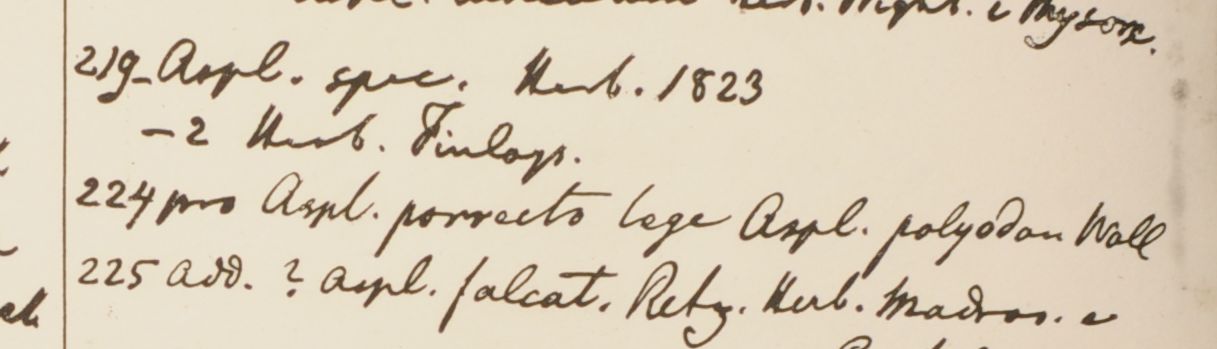 Herb. Wight. e Mysore.
219- Aspl. spec. Herb. 1823
-2 Herb. Finlays.
224 pro Aspl. porrecto lege Aspl. polyodon Wall
225 add. ? Aspl. falcat. Retz. Herb. Madras. e